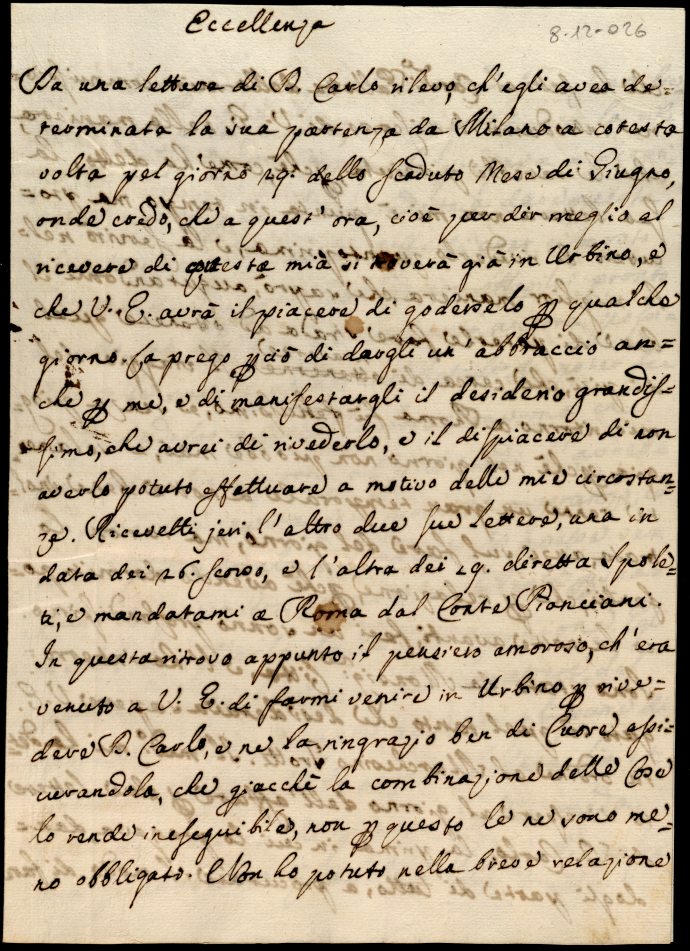 Eccellenza
8-12-026
Da una lettera di D. Carlo rilevo, ch'egli avea de=
terminata la sua partenza da Milano a cotesta
volta pel giorno 29. dello scaduto Mese di Giugno,
onde credo, che a quest' ora, cioè per dir meglio al
ricevere di questa mia si troverà già in Urbino, e
che V. E. avrà il piacere di goderselo ꝑ qualche
giorno. La prego ꝑciò di dargli un' abbraccio an=
che ꝑ me, e di manifestargli il desiderio grandis=
simo, che avrei di rivederlo, e il dispiacere di non
averlo potuto effettuare a motivo delle mie circostan=
ze. Ricevetti jeri l'altro due sue lettere, una in
data dei 26. scorso, e l'altra dei 29. diretta Spole=
ti, e mandatami a Roma dal Conte Pianciani.
In questa ritrovo appunto il pensiero amoroso, ch'era
venuto a V. E. di farmi venire in Urbino ꝑ rive=
dere D. Carlo, e ne la ringrazio ben di Cuore assi=
curandola, che giacchè la combinazione delle Cose
lo rende ineseguibile, non ꝑ questo le ne sono me=
no obbligato. Non ho potuto nella breve relazione